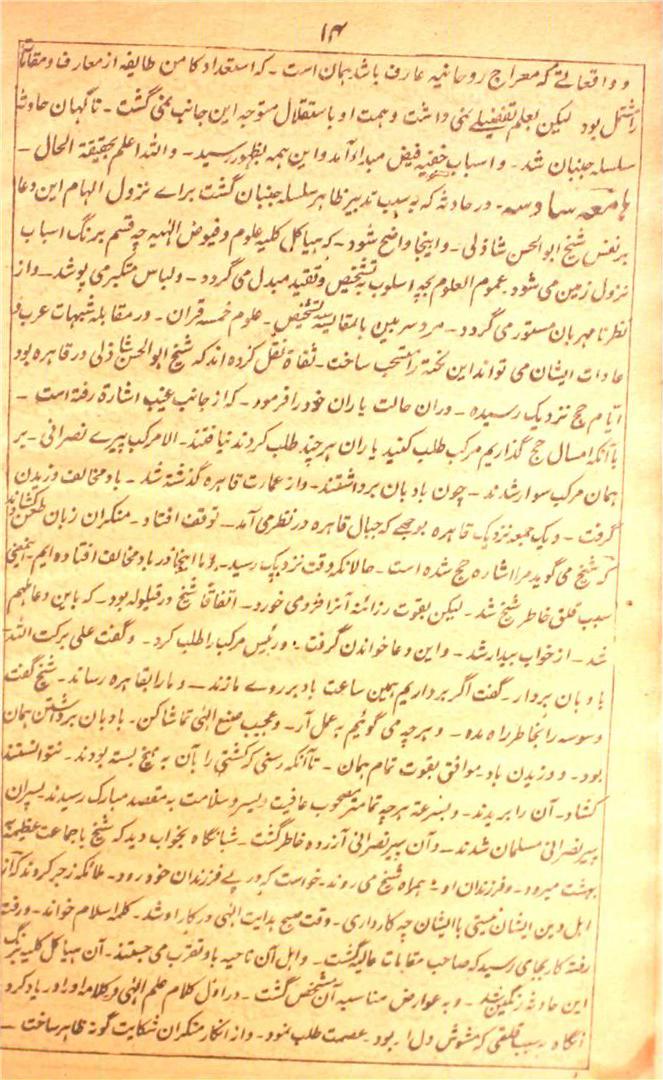 ۱۴
و واقعاتے کہ معراج روحانیہ عارف باشد ہمان است ۔ کہ استعداد کامن طایفہ از معارف و مقامات
را شتمل بود لیکن بعلم تفصیلے نمی داشت و ہمت او باستقلال متوجہ این جانب نمی گشت ۔ تا گہان حادثہ
سلسلہ جنبان شد ۔ و اسباب خفیہ فیض مبدا د آمد و این ہمہ بظہور رسید ۔ و اللہ اعلم بحقیقة الحال ۔
ہامعہ سادسہ ۔ در حادثہ کہ بہ سبب تدبیر ظاہر سلسلہ جنبان گشت براے نزول الہام این دعا
بر نفس شیخ ابو الحسن شاذلی ۔ و اینجا واضح شود ۔ کہ ہیاکل کلیہ علوم و فیوض الٰہیہ چہ قسم برنگ اسباب
نزول زمین می شود ۔ عموم العلوم بچہ اسلوب بتشخیص و تقید مبدل می گردد ۔ و لباس متکبر می پوشد ۔ و از
نظر نا مہربان مستور می گردد ۔ مرد سر مبین بالمقایسہ علوم خمسہ قران ۔ و در مقابلہ شبہات عرب و
عادات ایشان می تواند این نکتہ را منتخب ساخت ۔ ثقاة نقل کردہ اند کہ شیخ ابو الحسن شاذلی در قاہرہ بود
ایام حج نزدیک رسیدہ ۔ دران حالت یاران خود را فرمود ۔ کہ از جانب غیب اشارة رفتہ است ۔
با آنکہ امسال حج گذاریم مرکب طلب کنید یاران ہر چند طلب کردند نیافتند ۔ الا مرکب پیرے نصرانی ۔ بر
ہمان مرکب سوار شدند ۔ چون بادبان برداشتند ۔ و از عمارت قاہرہ گذشتہ شد ۔ باد مخالف وزیدن
گرفت ۔ و یک جمعہ نزدیک قاہرہ بوجھے کہ جبال قاہرہ در نظر می آمد ۔ توقف افتاد ۔ منکران زبان طعن کشادند
کہ شیخ می گوید مرا اشارہ حج شدہ است ۔ حالانکہ وقت نزدیک رسید ۔ و ما اینجا در باد مخالف افتادہ ایم ۔ اینمعنی
سبب قلق خاطر شیخ شد ۔ لیکن بقوت رزانت آنرا فرو می خورد ۔ اتفاقا شیخ در قیلولہ بود ۔ کہ باین دعا ملہم
شد ۔ از خواب بیدار شد ۔ و این دعا خواندن گرفت ۔ و رئیس مرکب را طلب کرد ۔ و گفت علی برکت اللہ
بادبان بردار ۔ گفت اگر برداریم ہمین ساعت باد بر روے ما زند ۔ و ما را بقاہرہ رساند ۔ شیخ گفت
وسوسہ را بخاطر راہ مدہ ۔ و ہر چہ می گوئیم بہ عمل آر ۔ و عجیب صنع الٰہی تماشا کن ۔ بادبان برداشتن ہمان
بود ۔ و وزیدن باد موافق بقوت تمام ہمان ۔ تا آنکہ رسنی کہ کشتی را بآن بہ میخ بستہ بودند ۔ نتوانستند
کشاد ۔ آن را بریدند ۔ و بسرعة ہر چہ تمامتر مصحوب عافیت و یسر و سلامت بہ مقصد مبارک رسیدند پسران
پیر نصرانی مسلمان شدند ۔ و آن پیر نصرانی آزردہ خاطر گشت ۔ شبانگاہ بخواب دید کہ شیخ با جماعت عظیمہ
بہشت میرود ۔ و فرزندان او ہمراہ شیخ می روند ۔ خواست کہ در پے فرزندان خود رود ۔ ملائکہ زجر کردند کہ از
اہل دین ایشان نیستی با ایشان چہ کار داری ۔ وقت صبح ہدایت الٰہی در کار او شد ۔ کلمہ اسلام خواند ۔ و رفتہ
رفتہ کار بجای رسید کہ صاحب مقامات عالیہ گشت ۔ و اہل آن ناحیہ با و تقرب می جستند ۔ آن ہیاکل کلیہ برنگ
این حادثہ رنگین شد ۔ و بہ عوارض مناسبہ آن مشخص گشت ۔ در اول کلام علم الٰہی و کلامہ او را یاد کرد
آنگاہ بہ سبب قلقی کہ مشوش دل او بود ۔ عصمت طلب نمود ۔ و از انکار منکران شکایت گونہ ظاہر ساخت ۔